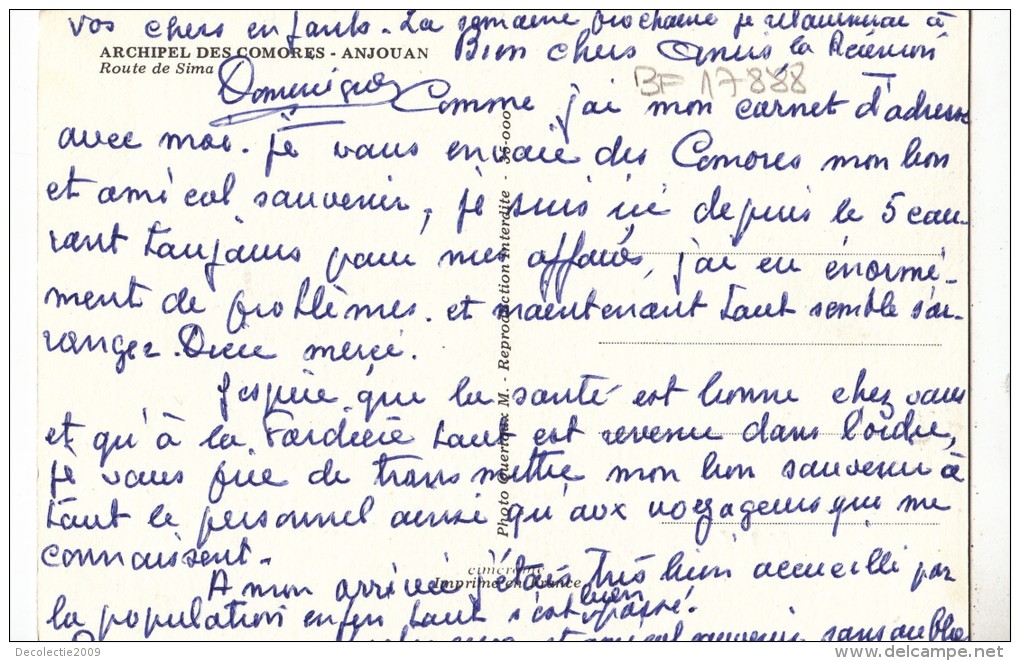 vos chers enfants. La semaine prochaine je retournerai à
ARCHIPEL DES COMORES - ANJOUAN
Route de Sima
Bien chers Amis, la Réunion
BF 17888
Comme j'ai mon carnet d'adresse
avec moi. je vous envoie des Comores mon bon
et amical souvenir, je suis ici depuis le 5 cou-
rant toujours pour mes affaires, j'ai eu énormé-
ment de problèmes. et maintenant tout semble s'ar-
ranger. Dieu merci.
J'espère que la santé est bonne chez vous
et qu'à la tout est revenu dans l'ordre,
je vous prie de transmettre mon bon souvenir à
tout le personnel ainsi qu'aux voyageurs que me
connaissent.
A mon arrivée j'étais très bien accueilli par
la population enfin tout s'est bien passé.
et amical souvenir sans oublier
Photo Quéméneur M. - Reproduction interdite - 36-000
Imprimé en France
Decolectie2009
www.delcampe.net